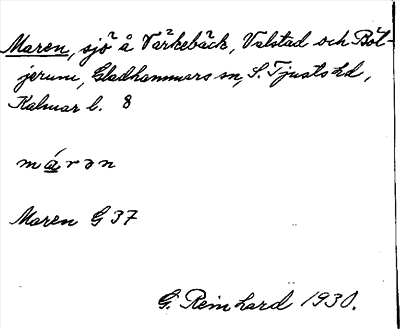 Maren, sjö å Värkebäck, Valstad och Böt-
jerum, Gladhammars sn, S. Tjusts hd,
Kalmar l. 8
máren
Maren G 37
G. Reinhard 1930.